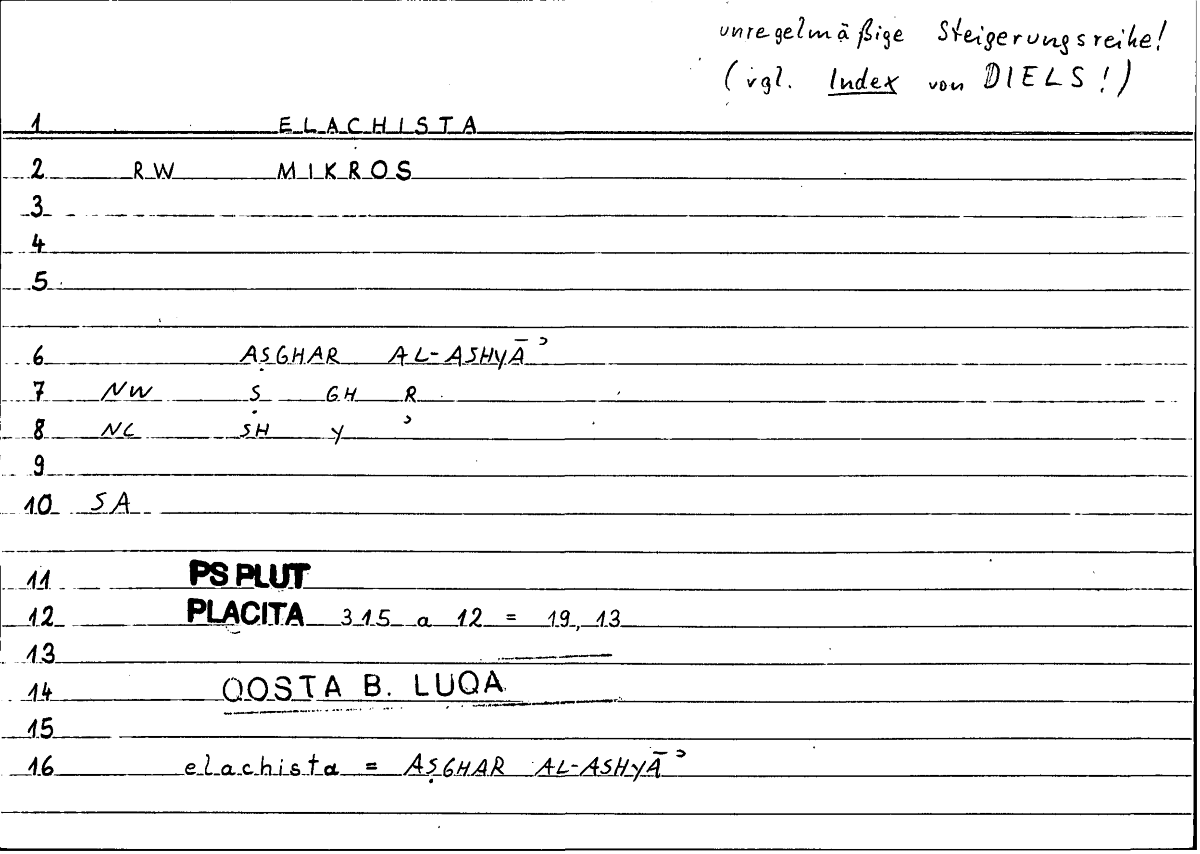 unregelmäßige Steigerungsreihe!
(vgl. Index von DIELS!)
1 ELACHISTA
2 RW MIKROS
3
4
5
6 AṢGHAR AL-ASHYĀʾ
7 NW Ṣ GH R
8 NC SH Y ʾ
9
10 SA
11 PS PLUT
12 PLACITA 315 a 12 = 19, 13
13
14 QOSTA B. LUQA
15
16 elachista = AṢGHAR AL-ASHYĀʾ